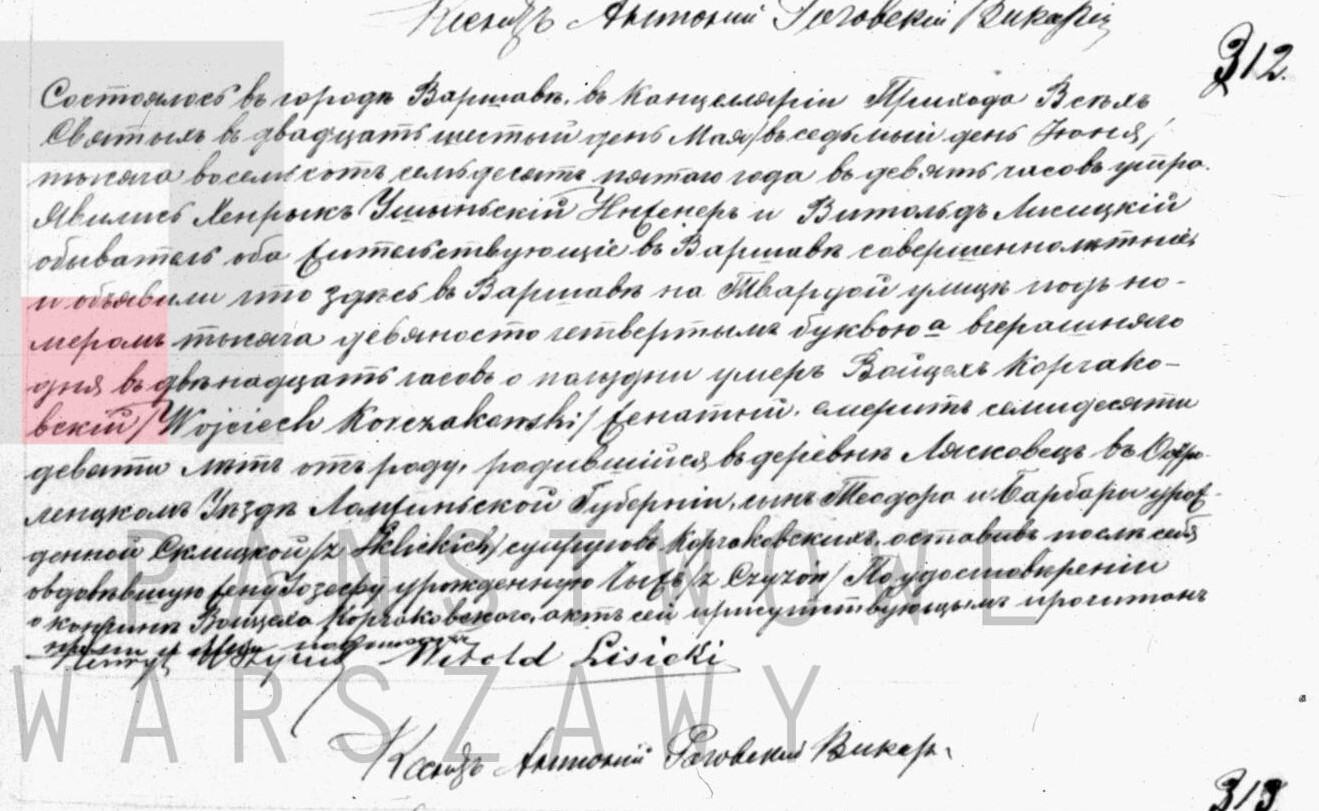 Ксендзъ Антоній Роговскій Викарій
312.
Состоялось въ городѣ Варшавѣ, въ Канцелляріи Прихода Всѣхъ
Святыхъ въ двадцать шестый день Мая /въ седьмый день Іюня/
тысяча восемьсотъ семьдесятъ пятаго года въ девять часовъ утра.
Явились Хенрыкъ Ушыньскій Инженеръ и Витольдъ Лисицкій
обыватель оба жительствующіе въ Варшавѣ совершеннолѣтніе,
и объявили что здѣсь въ Варшавѣ на Твардой улицѣ подъ но-
меромъ тысяча девяносто четвертымъ буквою а вчерашняго
дня въ двѣнадцать часовъ о полудни умеръ Войцехъ Корчако-
вскій /Wojciech Korczakowski/ женатый, емеритъ семидесяти
девяти лѣтъ отъ роду, родившійся въ деревнѣ Лясковецъ въ Остро-
ленцкомъ Уѣздѣ Ломжиньской Губерніи, сынъ Теодора и Барбары урож-
денной Склицкой /z Sklickich/ супруговъ Корчаковскихъ, оставивъ послѣ себя
овдовѣвшую жену Іозефу урожденную Чыжъ /z Czyżów/ По удостовѣреніи
о кончинѣ Войцеха Корчаковскаго, актъ сей присутствующымъ прочитанъ
нами и ими подписанъ
Henryk Witold Lisicki
Ксендзъ Антоній Роговскій Викарь
PAŃSTWOWE
WARSZAWY
313